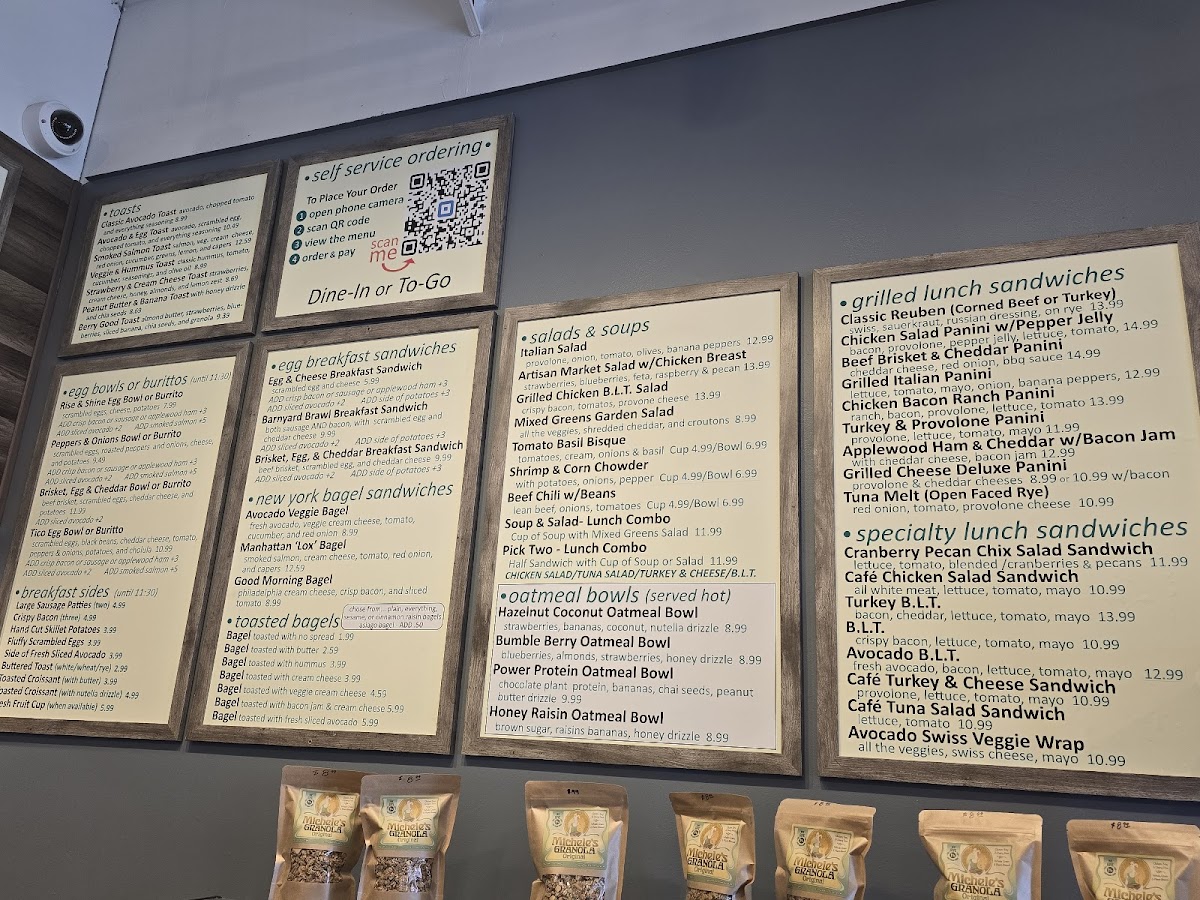 • toasts
Classic Avocado Toast avocado, chopped tomato
and everything seasoning 8.99
Avocado & Egg Toast avocado, scrambled egg,
chopped tomato, and everything seasoning 10.49
Smoked Salmon Toast salmon, veg. cream cheese,
red onion, cucumber, greens, lemon, and capers 12.59
Veggie & Hummus Toast classic hummus, tomato,
cucumber, seasonings, and olive oil 8.99
Strawberry & Cream Cheese Toast strawberries,
cream cheese, honey, almonds, and lemon zest 8.69
Peanut Butter & Banana Toast with honey drizzle
and chia seeds 8.63
Berry Good Toast almond butter, strawberries, blue-
berries, sliced banana, chia seeds, and granola 9.33
• self service ordering •
To Place Your Order
1 open phone camera
2 scan QR code
3 view the menu
4 order & pay
scan
me
Dine-In or To-Go
• egg bowls or buritos (until 11:30)
Rise & Shine Egg Bowl or Burrito
scrambled eggs, cheese, potatoes 7.99
ADD crisp bacon or sausage or applewood ham +3
ADD sliced avocado +2 ADD smoked salmon +5
Peppers & Onions Bowl or Burrito
scrambled eggs, roasted peppers and onions, cheese,
and potatoes 9.49
ADD crisp bacon or sausage or applewood ham +3
ADD sliced avocado +2 ADD smoked salmon +5
Brisket, Egg & Cheddar Bowl or Burrito
beef brisket, scrambled eggs, cheddar cheese, and
potatoes 11.99
ADD sliced avocado +2
Tico Egg Bowl or Buritto
scrambled eggs, black beans, cheddar cheese, tomato,
peppers & onions, potatoes, and cholula 10.99
ADD crisp bacon or sausage or applewood ham +3
ADD sliced avocado +2 ADD smoked salmon +5
• breakfast sides (until 11:30)
Large Sausage Patties (two) 4.99
Crispy Bacon (three) 4.99
Hand Cut Skillet Potatoes 3.99
Fluffy Scrambled Eggs 3.99
Side of Fresh Sliced Avocado 3.99
Buttered Toast (white/wheat/rye) 2.99
Toasted Croissant (with butter) 3.99
oasted Croissant (with nutella drizzle) 4.99
esh Fruit Cup (when available) 5.99
• egg breakfast sandwiches
Egg & Cheese Breakfast Sandwich
scrambled egg and cheese 5.99
ADD crisp bacon or sausage or applewood ham +3
ADD sliced avocado +2 ADD side of potatoes +3
Barnyard Brawl Breakfast Sandwich
both sausage AND bacon, with scrambled egg and
cheddar cheese 9.99
ADD sliced avocado +2 ADD side of potatoes +3
Brisket, Egg, & Cheddar Breakfast Sandwich
beef brisket, scrambled egg, and cheddar cheese 9.99
ADD sliced avocado +2 ADD side of potatoes +3
• new york bagel sandwiches
Avocado Veggie Bagel
fresh avocado, veggie cream cheese, tomato,
cucumber, and red onion 8.99
Manhattan 'Lox' Bagel
smoked salmon, cream cheese, tomato, red onion,
and capers 12.59
Good Morning Bagel
philadelphia cream cheese, crisp bacon, and sliced
tomato 8.99
• toasted bagels
chose from... plain, everything,
sesame, or cinnamon raisin bagels
asiago bagel ADD .50
Bagel toasted with no spread 1.99
Bagel toasted with butter 2.59
Bagel toasted with hummus 3.99
Bagel toasted with cream cheese 3.99
Bagel toasted with veggie cream cheese 4.59
Bagel toasted with bacon jam & cream cheese 5.99
Bagel toasted with fresh sliced avocado 5.99
• salads & soups
Italian Salad
provolone, onion, tomato, olives, banana peppers 12.99
Artisan Market Salad w/Chicken Breast
strawberries, blueberries, feta, raspberry & pecan 13.99
Grilled Chicken B.L.T. Salad
crispy bacon, tomatos, provone cheese 13.99
Mixed Greens Garden Salad
all the veggies, shredded cheddar, and croutons 8.99
Tomato Basil Bisque
tomatoes, cream, onions & basil Cup 4.99/Bowl 6.99
Shrimp & Corn Chowder
with potatoes, onions, pepper Cup 4.99/Bowl 6.99
Beef Chili w/Beans
lean beef, onions, tomatoes Cup 4.99/Bowl 6.99
Soup & Salad- Lunch Combo
Cup of Soup with Mixed Greens Salad 11.99
Pick Two - Lunch Combo
Half Sandwich with Cup of Soup or Salad 11.99
CHICKEN SALAD/TUNA SALAD/TURKEY & CHEESE/B.L.T.
• oatmeal bowls (served hot)
Hazelnut Coconut Oatmeal Bowl
strawberries, bananas, coconut, nutella drizzle 8.99
Bumble Berry Oatmeal Bowl
blueberries, almonds, strawberries, honey drizzle 8.99
Power Protein Oatmeal Bowl
chocolate plant protein, bananas, chai seeds, peanut
butter drizzle 9.99
Honey Raisin Oatmeal Bowl
brown sugar, raisins bananas, honey drizzle 8.99
• grilled lunch sandwiches
Classic Reuben (Corned Beef or Turkey)
swiss, sauerkraut, russian dressing, on rye 13.99
Chicken Salad Panini w/Pepper Jelly
bacon, provolone, pepper jelly, lettuce, tomato, 14.99
Beef Brisket & Cheddar Panini
cheddar cheese, red onion, bbq sauce 14.99
Grilled Italian Panini
lettuce, tomato, mayo, onion, banana peppers, 12.99
Chicken Bacon Ranch Panini
ranch, bacon, provolone, lettuce, tomato 13.99
Turkey & Provolone Panini
provolone, lettuce, tomato, mayo 11.99
Applewood Ham & Cheddar w/Bacon Jam
with cheddar cheese, bacon jam 12.99
Grilled Cheese Deluxe Panini
provolone & cheddar cheeses 8.99 or 10.99 w/bacon
Tuna Melt (Open Faced Rye)
red onion, tomato, provolone cheese 10.99
• specialty lunch sandwiches
Cranberry Pecan Chix Salad Sandwich
lettuce, tomato, blended /cranberries & pecans 11.99
Café Chicken Salad Sandwich
all white meat, lettuce, tomato, mayo 10.99
Turkey B.L.T.
bacon, cheddar, lettuce, tomato, mayo 13.99
B.L.T.
crispy bacon, lettuce, tomato, mayo 10.99
Avocado B.L.T.
fresh avocado, bacon, lettuce, tomato, mayo 12.99
Café Turkey & Cheese Sandwich
provolone, lettuce, tomato, mayo 10.99
Café Tuna Salad Sandwich
lettuce, tomato 10.99
Avocado Swiss Veggie Wrap
all the veggies, swiss cheese, mayo 10.99
Michele's
GRANOLA
Original
Michele's
GRANOLA
Original
Michele's
GRANOLA
Original
Michele's
GRANOLA
Original
Michele's
GRANOLA
Original
Michele's
GRANOLA
Original
Michele's
GRANOLA
Original